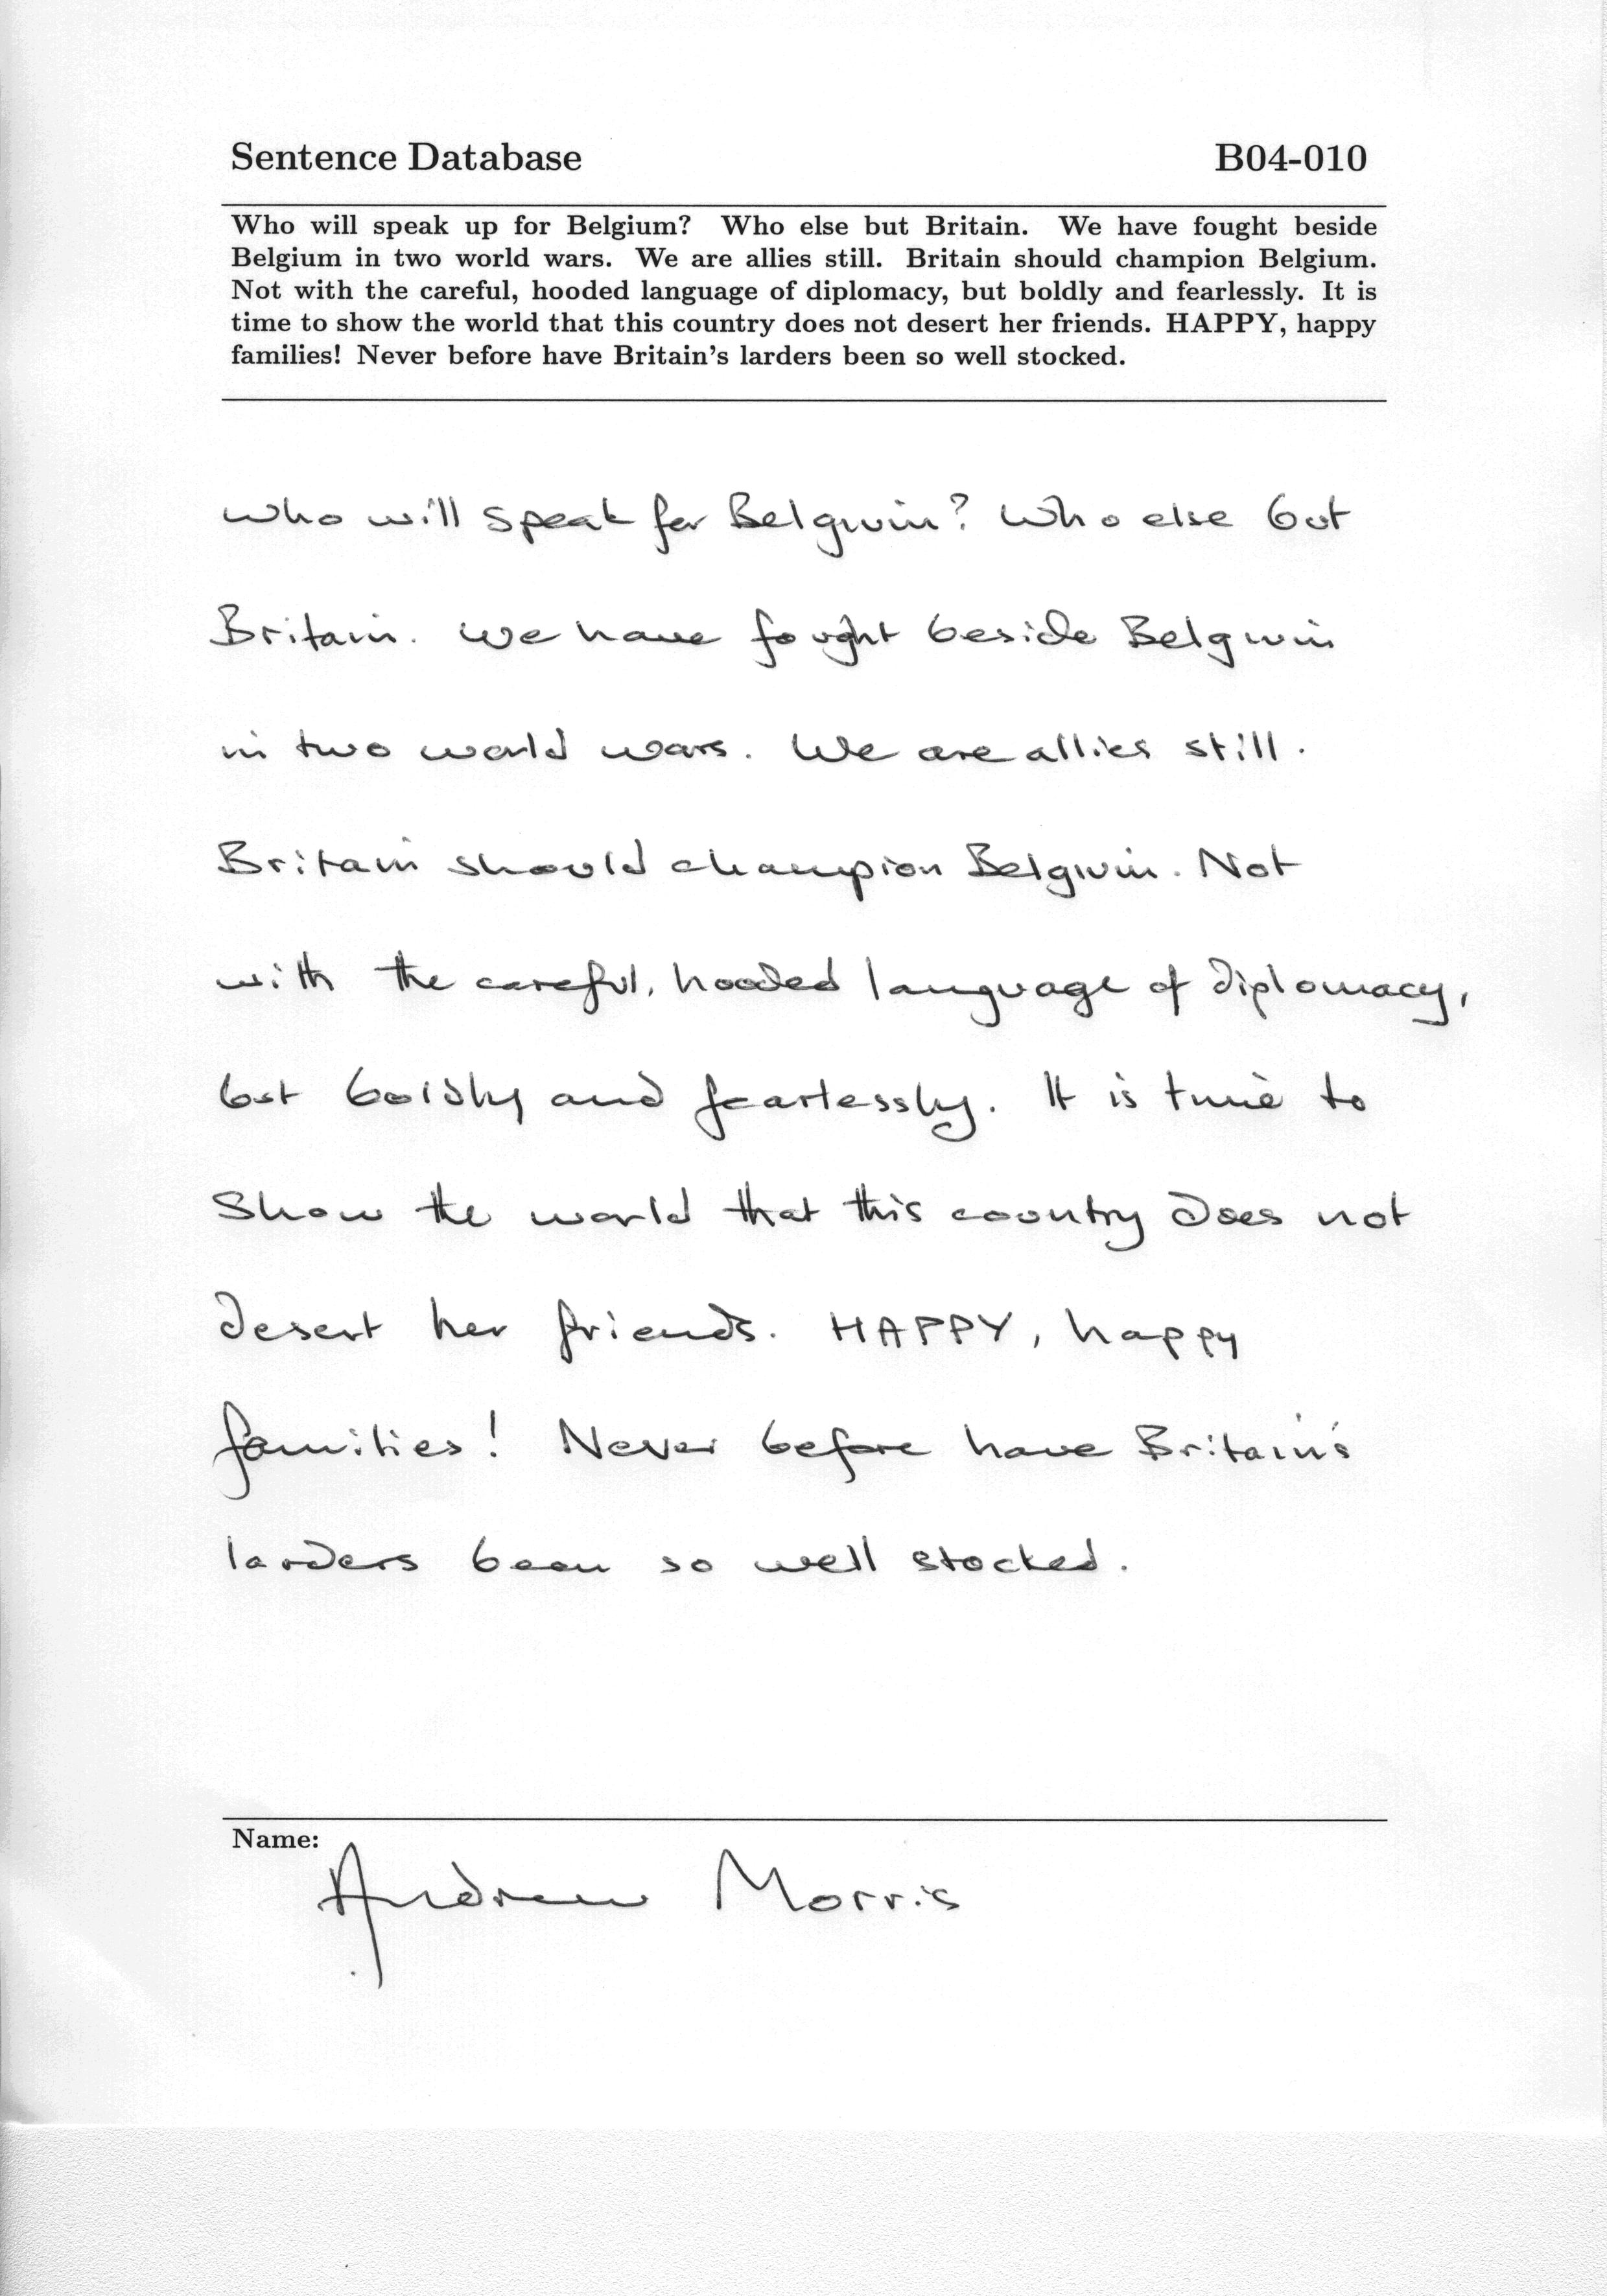 Sentence Database B04-010
Who will speak up for Belgium? Who else but Britain. We have fought beside
Belgium in two world wars. We are allies still. Britain should champion Belgium.
Not with the careful, hooded language of diplomacy, but boldly and fearlessly. It is
time to show the world that this country does not desert her friends. HAPPY, happy
families! Never before have Britain's larders been so well stocked.
Who will speak for Belgium? Who else but
Britain. We have fought beside Belgium
in two world wars. We are allies still.
Britain should champion Belgium. Not
with the careful, hooded language of diplomacy,
but boldly and fearlessly. It is time to
show the world that this country does not
desert her friends. HAPPY, happy
families! Never before have Britain's
larders been so well stocked.
Name:
Andrew Morris